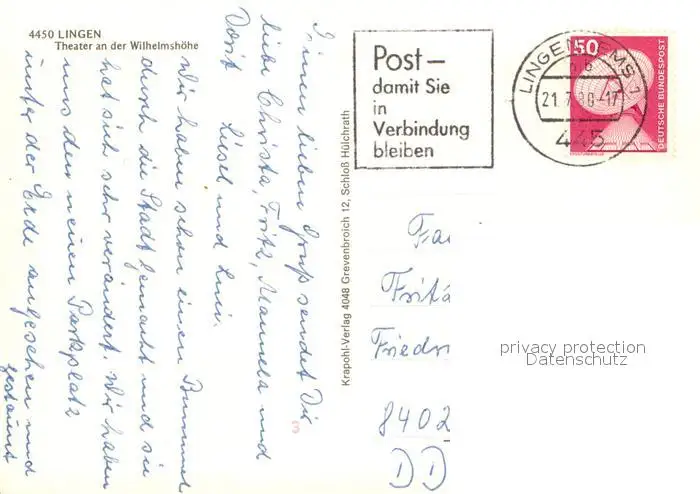 4450 LINGEN
Theater an der Wilhelmshöhe
Post—
damit Sie
in
Verbindung
bleiben
LINGEN (EMS) 1
21.7.80-17
445
50
DEUTSCHE BUNDESPOST
Krapohl-Verlag 4048 Grevenbroich 12, Schloß Hülchrath
Einen lieben Gruß sendet Dir
liebe Christa, Fritz, Manuela und
Dorit
Liesel und
Wir haben schon einen Bummel
durch die Stadt gemacht und sie
hat sich sehr verändert. Wir haben
uns den neuen Parkplatz
unter der Erde angesehen und
gestaunt
3
Fa
Fritz
Friedr
8402
DD
privacy protection
Datenschutz